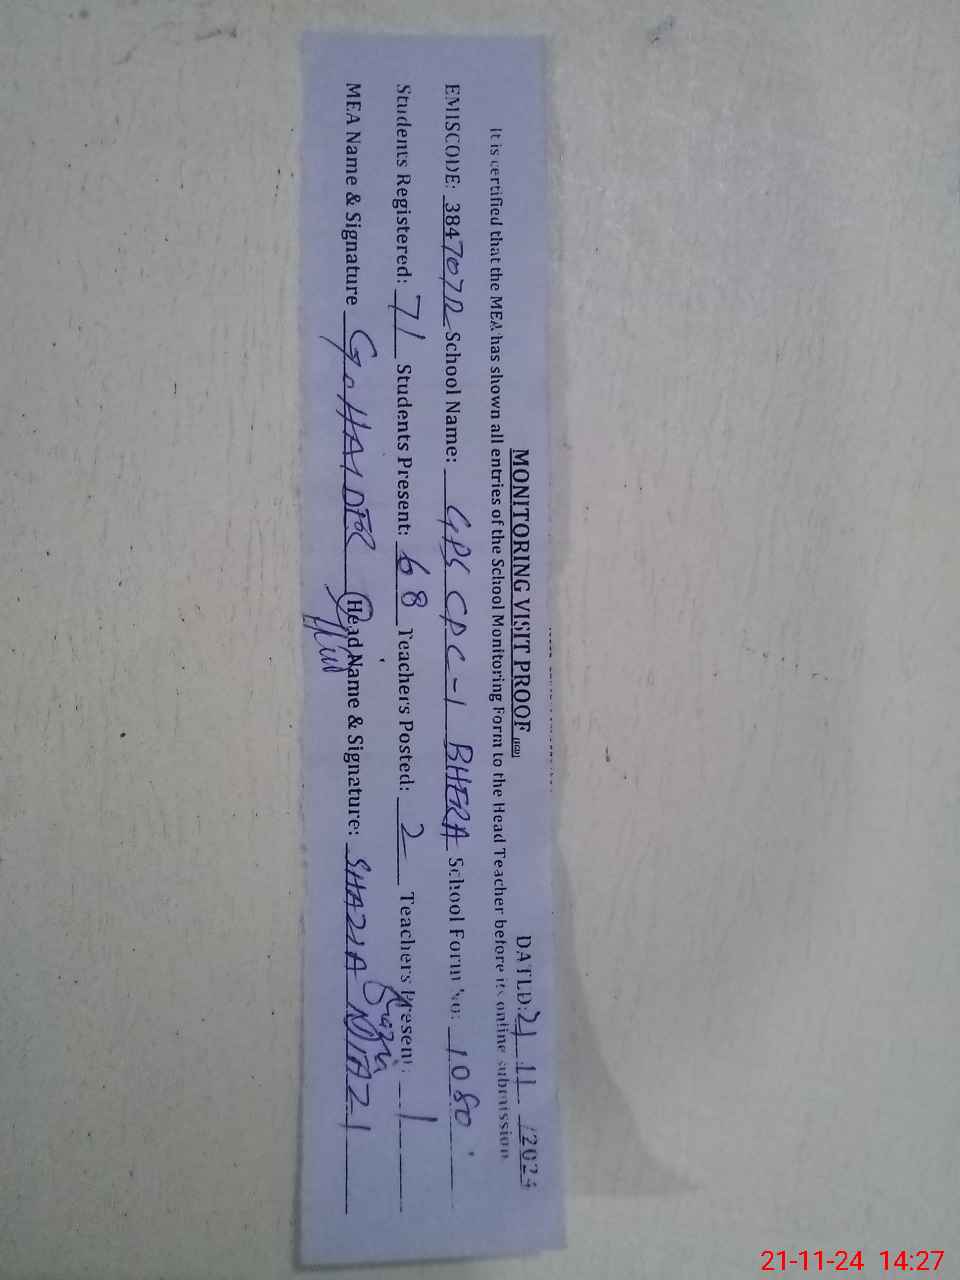 MONITORING VISIT PROOF
DATED: 21 11 /2024
It is certified that the MEA has shown all entries of the School Monitoring Form to the Head Teacher before its online submission.
EMISCODE: 38470712 School Name: GPS CPC-1 BHERA School Form No: 1080
Students Registered: 71 Students Present: 68 Teachers Posted: 2 Teachers Present: 1
MEA Name & Signature G. HAIDER Head Name & Signature: SHAZIA NIAZI
21-11-24 14:27